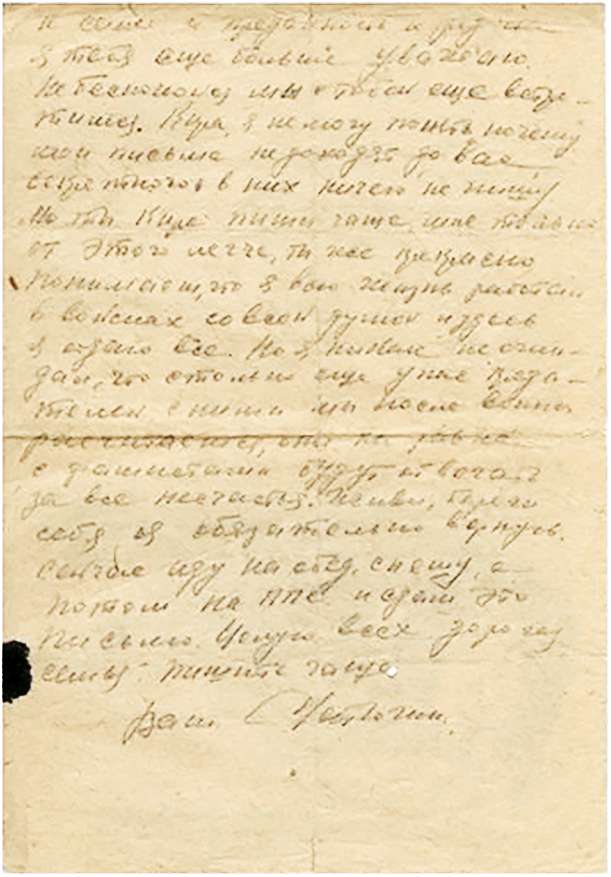 к семье и преданность к родине
я тебя еще больше уважаю.
Не беспокойся мы с тобой еще встре-
тимся. Кира, я не могу понять почему
мои письма не доходят до вас
секретного в них ничего не пишу
Но ты Кира пиши чаще, мне только
от этого легче, ты же прекрасно
понимаешь, что я всю жизнь работал
в войсках со всей душой и здесь
я отдаю все. Но я никак не ожи-
дал, что столько еще у нас преда-
телей с ними мы после войны
расчитаемся, они на равне
с фашистами будут отвечать
за все несчастья. Живи, береги
себя я обязательно вернусь.
сейчас иду на обед, спешу, а
потом на ППС и сдам это
письмо. Целую всех дорогая
семья. Пишите чаще
Ваш